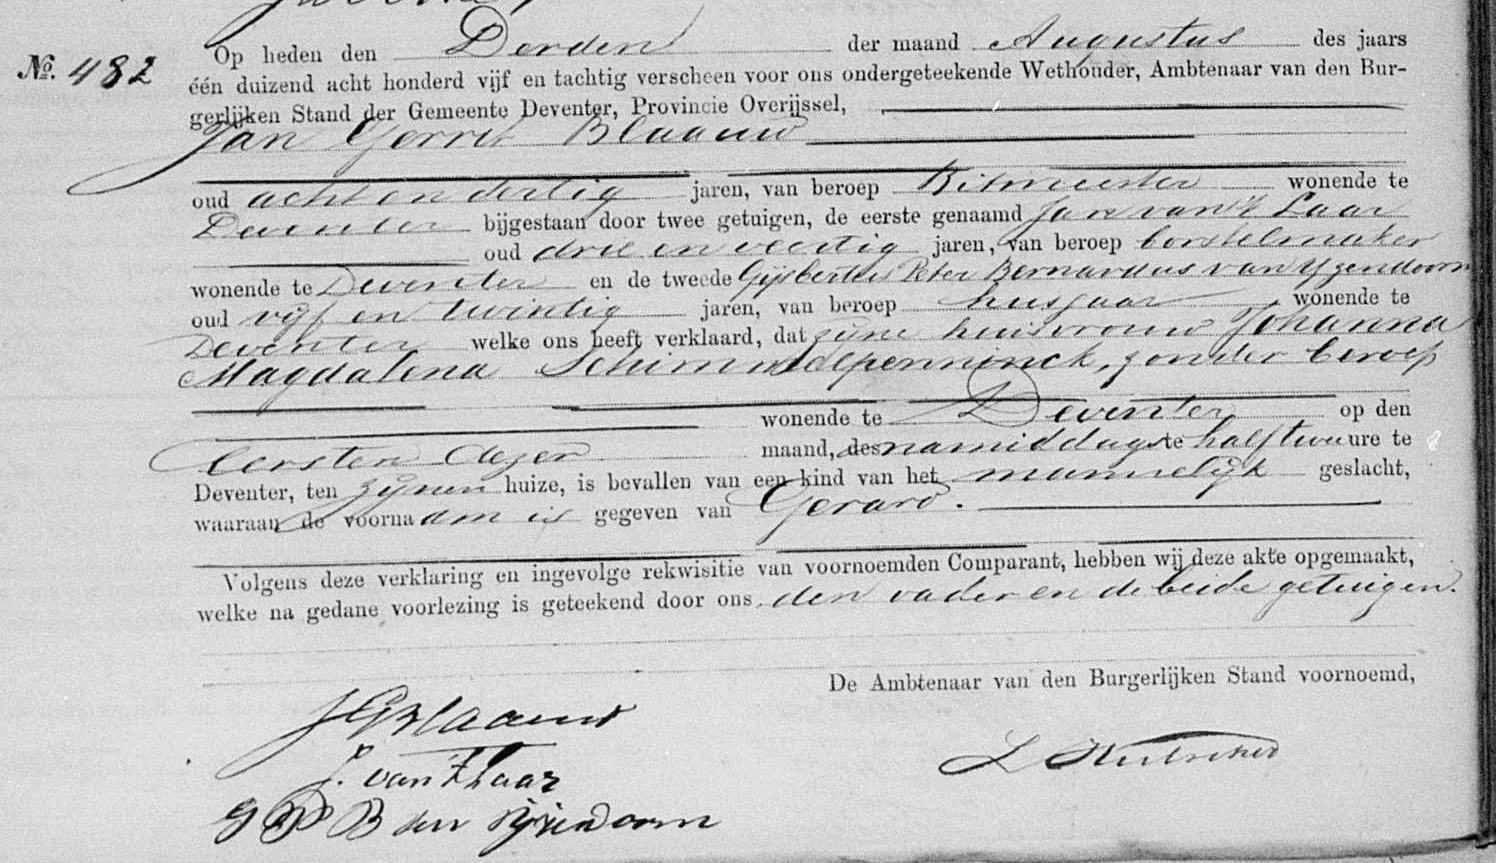 No. 482
Op heden den Derden der maand Augustus des jaars
één duizend acht honderd vijf en tachtig verscheen voor ons ondergeteekende Wethouder, Ambtenaar van den Bur-
gerlijken Stand der Gemeente Deventer, Provincie Overijssel,
Jan Gerrit Blaauw
oud acht en dertig jaren, van beroep Ritmeester wonende te
Deventer bijgestaan door twee getuigen, de eerste genaamd Jan van 't Laar
oud drie en veertig jaren, van beroep borstelmaker
wonende te Deventer en de tweede Gijsbertus Peter Bernardus van Yzendoorn
oud vijf en twintig jaren, van beroep huszaar wonende te
Deventer welke ons heeft verklaard, dat zijne huisvrouw Johanna
Magdalena Schimmelpenninck, zonder beroep
wonende te Deventer op den
eersten dezer maand, des namiddags te half twee ure te
Deventer, ten zijnen huize, is bevallen van een kind van het mannelijk geslacht,
waaraan de voornaam is gegeven van Gerard.
Volgens deze verklaring en ingevolge rekwisitie van voornoemden Comparant, hebben wij deze akte opgemaakt,
welke na gedane voorlezing is geteekend door ons, den vader en de beide getuigen.
De Ambtenaar van den Burgerlijken Stand voornoemd,
JGBlaauw
J. van 't Laar
G P B